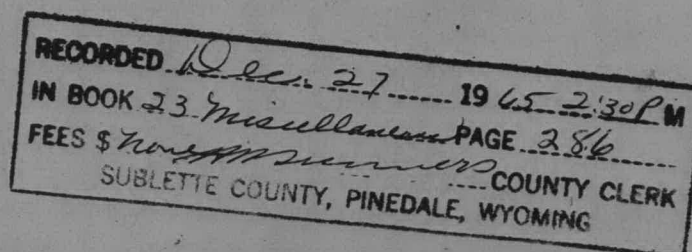 RECORDED Dec. 27 1965 2:30 P M
IN BOOK 23 Miscellaneous PAGE 286
FEES $ none COUNTY CLERK
SUBLETTE COUNTY, PINEDALE, WYOMING